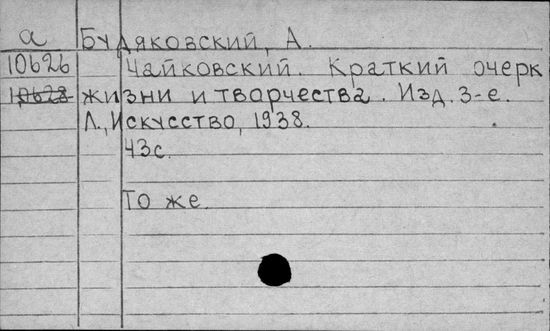 а Будяковский, А.
10626 Чайковский. Краткий очерк
10628 жизни и творчества. Изд. 3-е.
Л., Искусство, 1938.
43с.
То же.